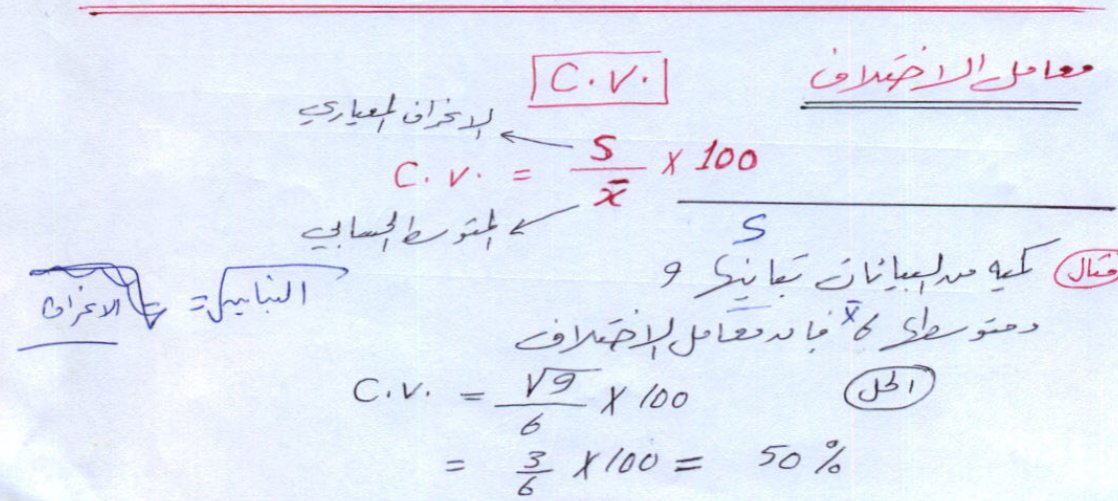 معامل الاختلاف
C.V.
الانحراف المعياري
C.V. = S / x̄ × 100
المتوسط الحسابي
S
مثال كمية من البيانات تباينها 9
ومتوسطها 6 x̄ فإن معامل الاختلاف
الانحراف = √التباين
الحل
C.V. = √9 / 6 × 100
= 3/6 × 100 = 50 %